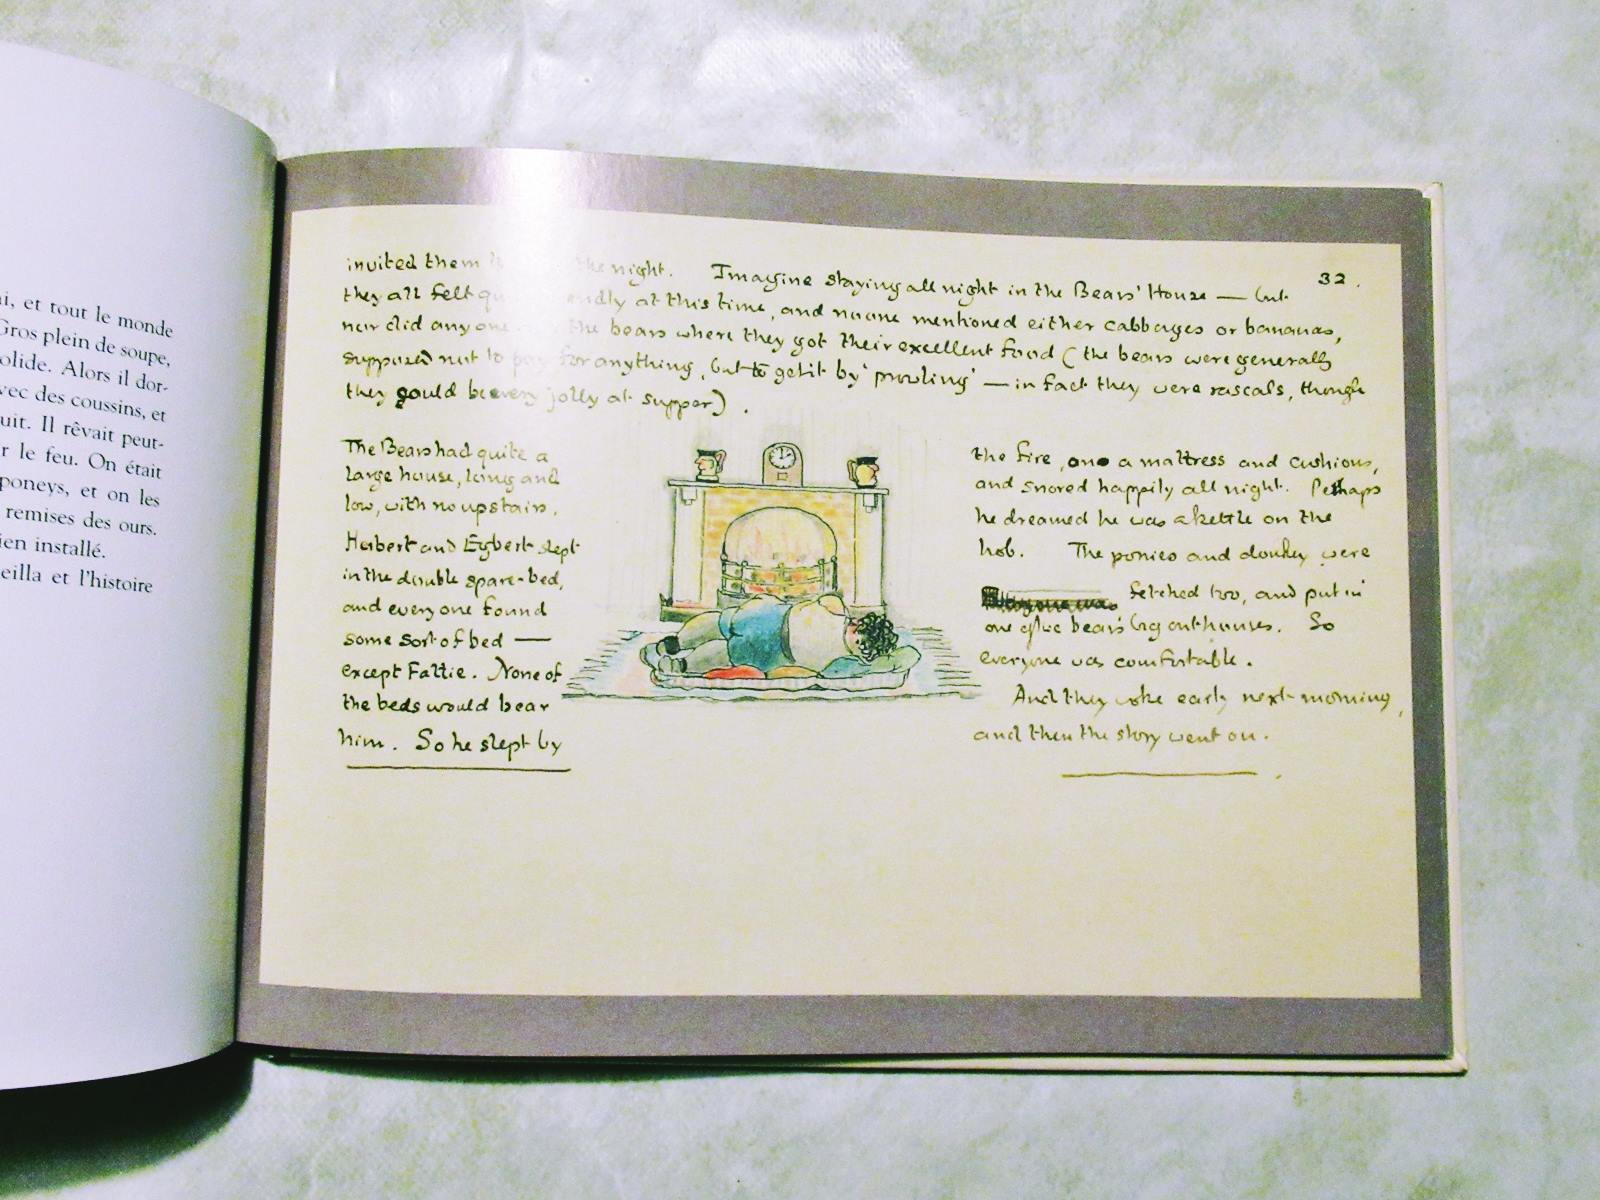 i, et tout le monde
Gros plein de soupe,
olide. Alors il dor-
vec des coussins, et
uit. Il rêvait peut-
r le feu. On était
poneys, et on les
remises des ours.
ien installé.
eilla et l'histoire
32.
invited them the night. Imagine staying all night in the Bears' House — but
they all felt at this time, and no one mentioned either cabbages or bananas,
nor did anyone the bears where they got their excellent food (the bears were generally
supposed not to pay for anything, but to get it by 'prowling' — in fact they were rascals, though
they could be very jolly at supper).
The Bears had quite a
large house, long and
low, with no upstairs.
Herbert and Egbert slept
in the double spare-bed,
and everyone found
some sort of bed —
except Fattie. None of
the beds would bear
him. So he slept by
the fire, on a mattress and cushions,
and snored happily all night. Perhaps
he dreamed he was a kettle on the
hob. The ponies and donkey were
fetched too, and put in
one of the bears' big outhouses. So
everyone was comfortable.
And they woke early next morning,
and then the story went on.